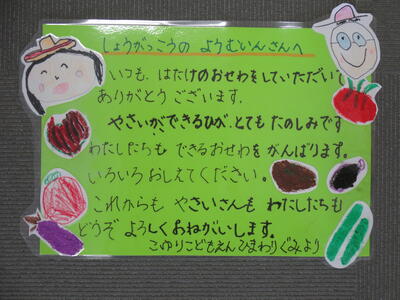 しょうがっこうの ようむいんさんへ
いつも、はたけのおせわをしていただいて
ありがとうございます。
やさいができるひべ、とてもたのしみです
わたしたちも できるおせわを がんばります。
いろいろおしえてください。
これからも やさいさんも わたしたちも
どうぞ よろしくおねがいします。
こゆりこどもえん ひまわりぐみより